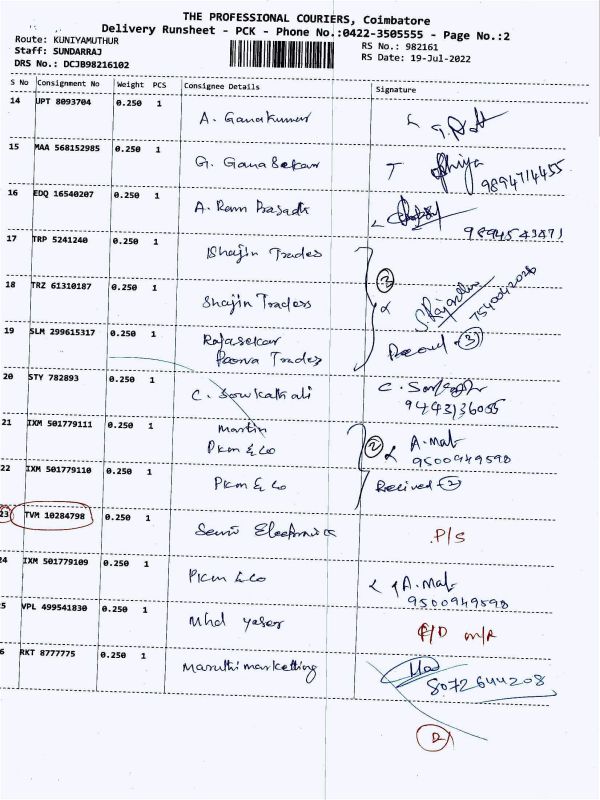 THE PROFESSIONAL COURIERS, Coimbatore
Delivery Runsheet - PCK - Phone No.:0422-3505555 - Page No.:2
Route: KUNIYAMUTHUR
RS No.: 982161
Staff: SUNDARRAJ
RS Date: 19-Jul-2022
DRS No.: DCJB98216102
S No Consignment No Weight PCS Consignee Details Signature
14 UPT 8093704 0.250 1 A. Ganakumar
15 MAA 568152985 0.250 1 G. GanaSekar
9894714455
16 EDQ 16540207 0.250 1 A. Ram Prasadh
9894543471
17 TRP 5241240 0.250 1 Shajin Trades
3
18 TRZ 61310187 0.250 1 Shajin Traders
7540042026
19 SLM 299615317 0.250 1 Rajasekar
Poorva Trades
3
20 STY 782893 0.250 1 C. Sowkathali C.
9443136055
21 IXM 501779111 0.250 1 Martin
Pkm & Co
2 A. Mal
9500949598
22 IXM 501779110 0.250 1 Pkm & Co
Recived 2
23 TVM 10284798 0.250 1 Electronics P/S
24 IXM 501779109 0.250 1 Pkm & Co A. Mal
9500949598
5 VPL 499541830 0.250 1 Mhd yaser
6 RKT 8777775 0.250 1 Maruthi marketting
8072644208